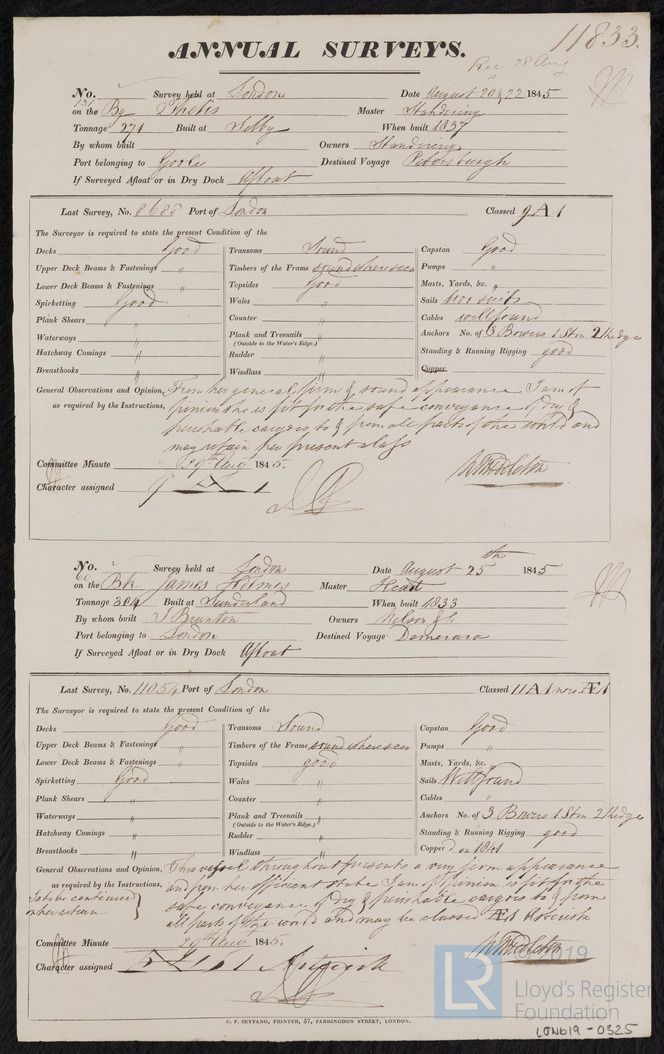 11833.
ANNUAL SURVEYS.
Rec 28 Aug
No. 131 Survey held at London Date August 20 & 22 1845
on the Bg Thetis Master Standering
Tonnage 271 Built at Selby When built 1837
By whom built Owners Standering
Port belonging to Goole Destined Voyage Petersburgh
If Surveyed Afloat or in Dry Dock Afloat
Last Survey, No. 8688 Port of London Classed 9A1
The Surveyor is required to state the present Condition of the
Decks Good Transoms Sound Capstan Good
Upper Deck Beams & Fastenings " Timbers of the Frame sound where seen Pumps "
Lower Deck Beams & Fastenings " Topsides Good Masts, Yards, &c. "
Spirketting Good Wales " Sails
Plank Shears " Counter " Cables well found
Waterways " Plank and Treenails " Anchors No. of 3 Bowers 1 Stm 2 Kedges
(Outside to the Water's Edge.)
Hatchway Comings " Rudder " Standing & Running Rigging good
Breasthooks " Windlass " Copper
General Observations and Opinion, From her general firm & sound appearance I am of
as required by the Instructions, opinion she is fit for the safe conveyance of dry &
perishable cargoes to & from all parts of the world and
may retain her present class
Committee Minute 29th Aug 1845.
Character assigned 9 A 1
No. 60 Survey held at London Date August 25th 1845
on the Bk James Holmes Master Head
Tonnage 304 Built at Sunderland When built 1833
By whom built J Brunton Owners Nelson & Co
Port belonging to London Destined Voyage Demerara
If Surveyed Afloat or in Dry Dock Afloat
Last Survey, No. 11054 Port of London Classed 11A1 now Æ1
The Surveyor is required to state the present Condition of the
Decks Good Transoms Sound Capstan Good
Upper Deck Beams & Fastenings " Timbers of the Frame sound where seen Pumps "
Lower Deck Beams & Fastenings " Topsides good Masts, Yards, &c. "
Spirketting Good Wales " Sails Well found
Plank Shears " Counter " Cables "
Waterways " Plank and Treenails " Anchors No. of 3 Bowers 1 Stm 2 Kedges
(Outside to the Water's Edge.)
Hatchway Comings " Rudder " Standing & Running Rigging good
Breasthooks " Windlass " Copper'd on 1841
General Observations and Opinion, This vessel throughout presents a very firm appearance
as required by the Instructions, and from her efficient state I am of opinion is fit for the
safe conveyance of dry & perishable cargoes to & from
all parts of the world and may be classed Æ1
Committee Minute 29th Aug 1845.
Character assigned
C. F. SEYFANG, PRINTER, 57, FARRINGDON STREET, LONDON.
LR
© 2019
Lloyd's Register
Foundation
LON619-0325